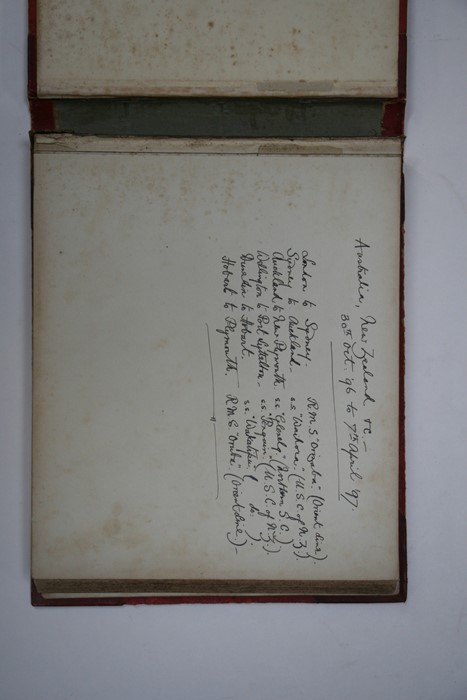 Australia, New Zealand &c –
30th Oct. '96 to 7th April '97.
London to Sydney R.M.S. "Orizaba". (Orient Line).
Sydney to Auckland – s.s. "Waihora". (U.S.C. of N.Z.)
Auckland to New Plymouth, s.s. "Glenelg" (Northern S.C.)
Wellington to Port Lyttelton – s.s. "Penguin". (U.S.C. of N.Z.).
Dunedin to Hobart. s.s. "Wakatipu". ( do ).
Hobart to Plymouth. R.M.S. "Oruba". (Orient Line) –